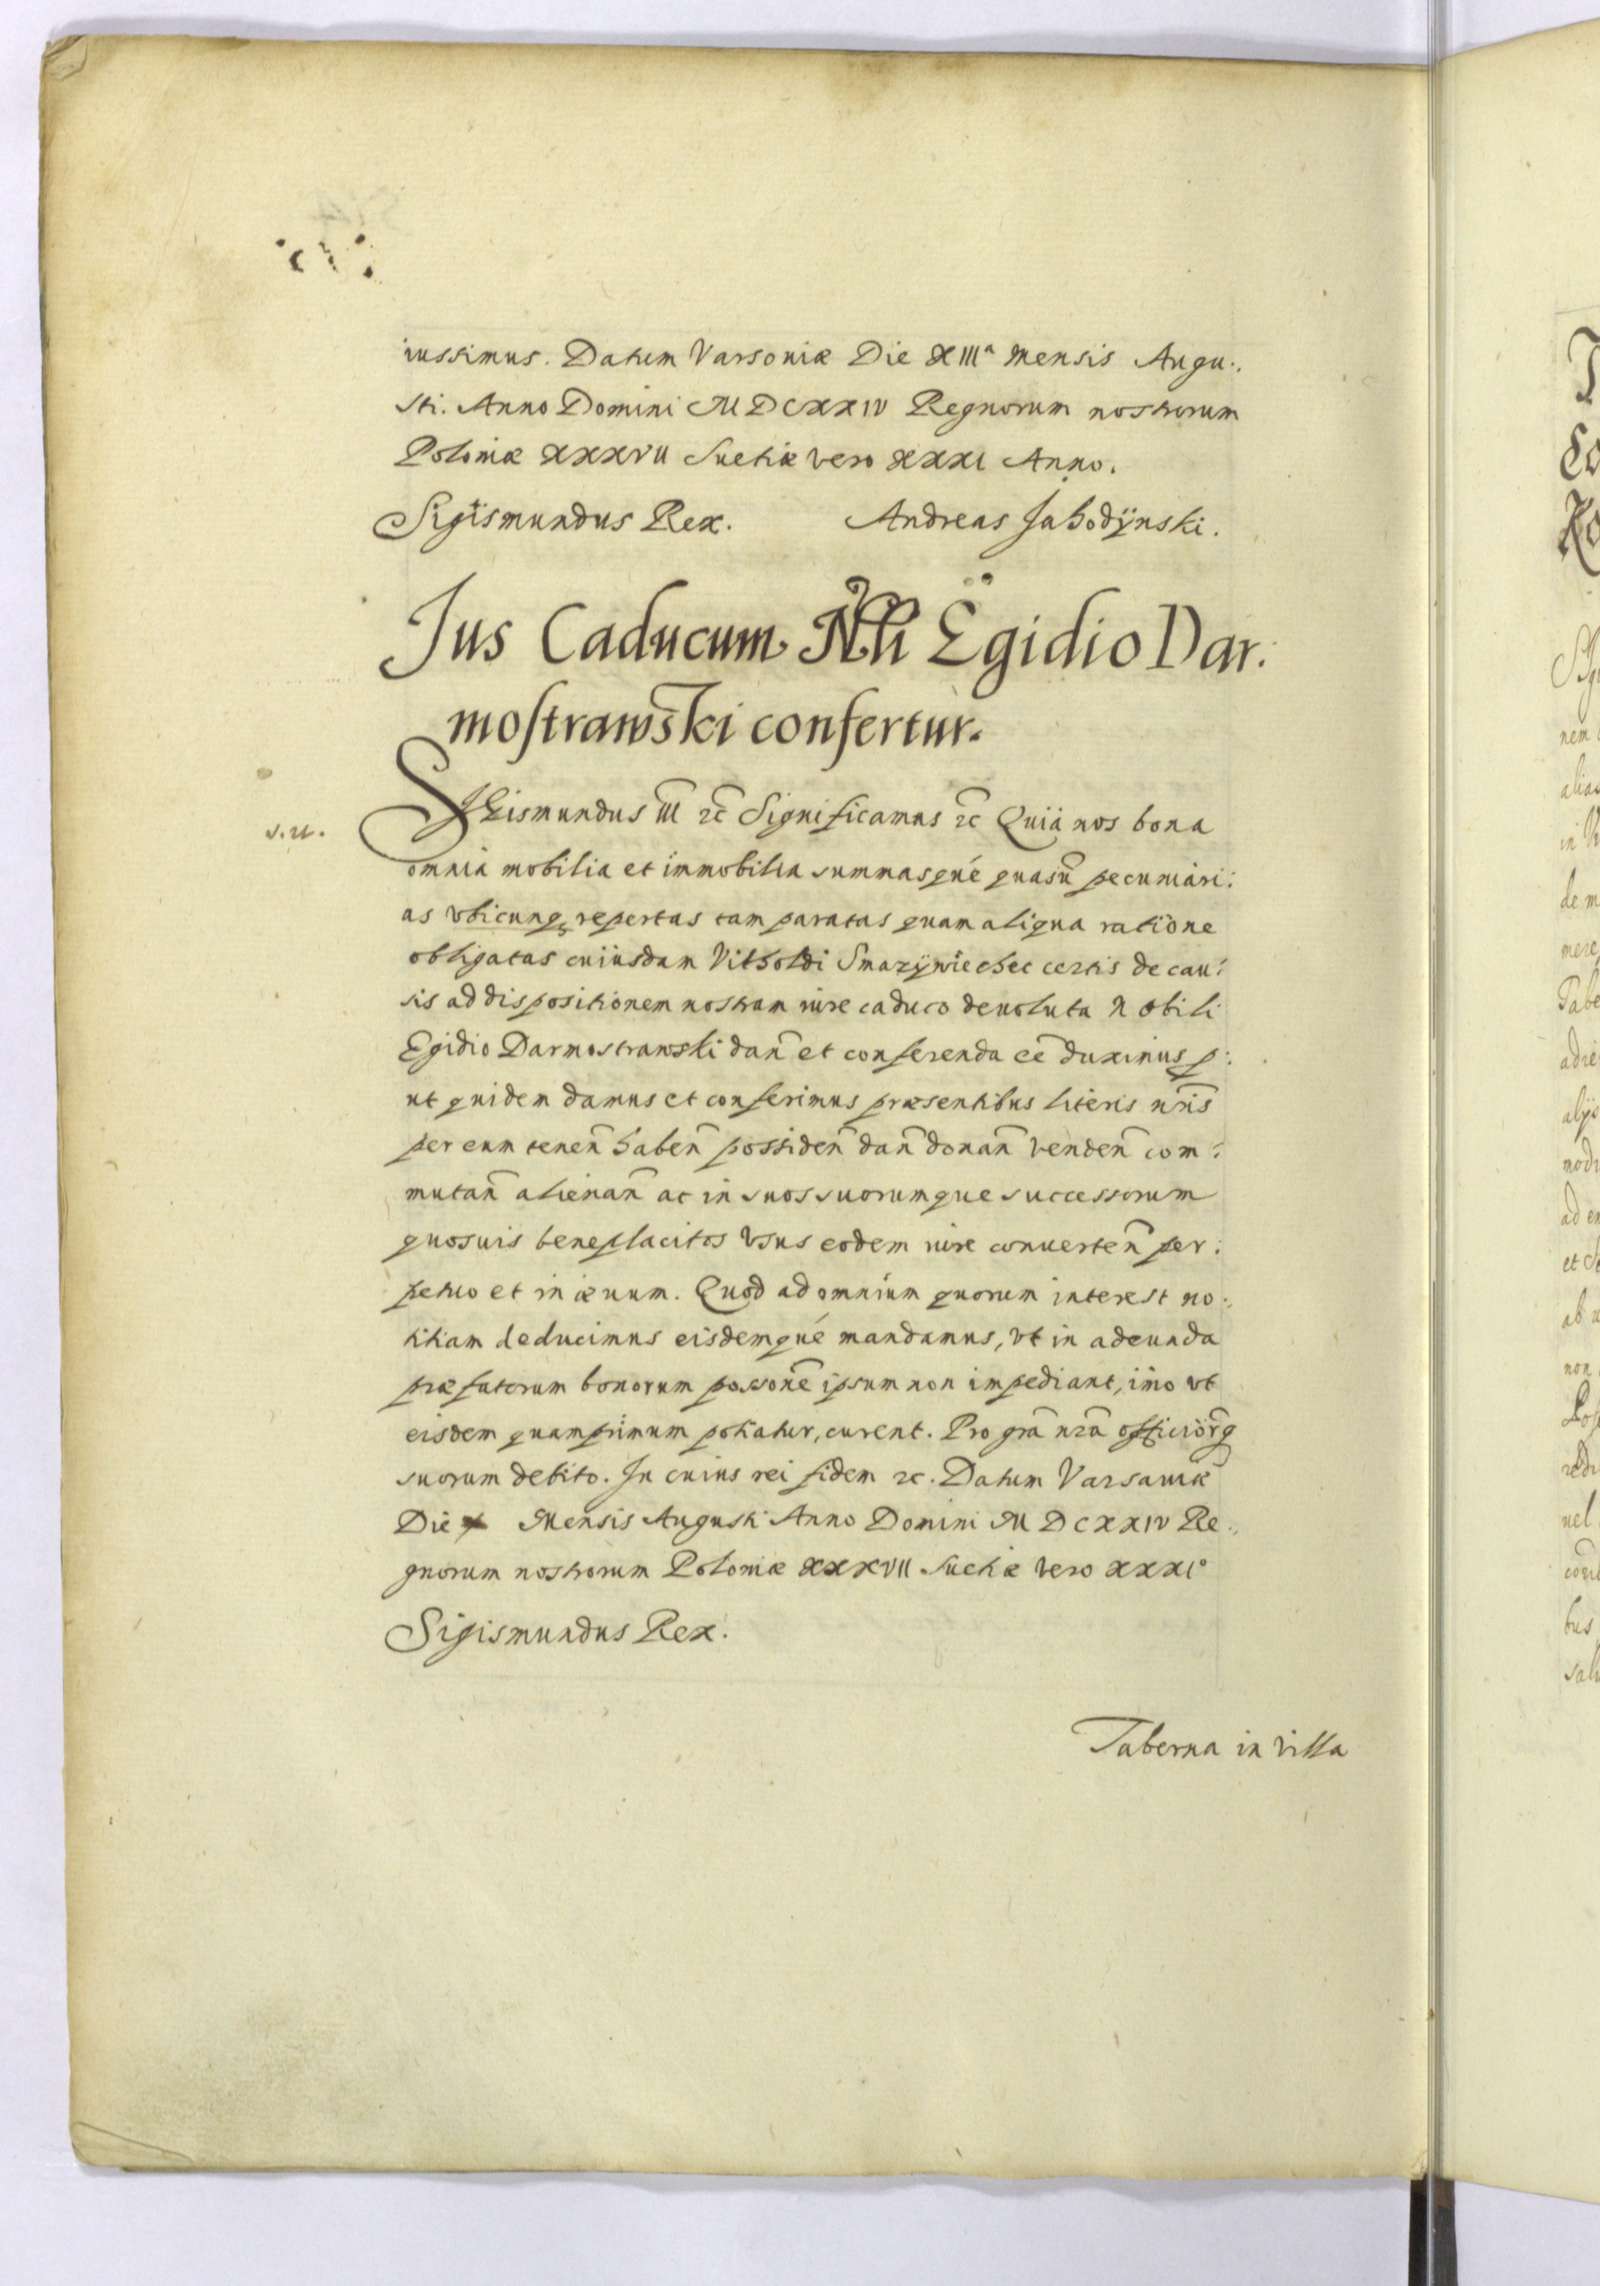 iussimus. Datum Varsoviæ Die XIIIa Mensis Augu.,
sti. Anno Domini MDCXXIV Regnorum nostrorum
Poloniæ XXXVII Suetiæ vero XXXI Anno.
Sigismundus Rex. Andreas Jahodÿnski.
Jus Caducum Nli Egidio Dar.
mostrawski confertur.
s.u. Sigismundus III &c Significamus &c Quia nos bona
omnia mobilia et immobilia summasqué quasũ pecuniari:
as vbicunq repertas tam paratas quam aliqua ratione
obligatas cuiusdam Vitholdi Smazÿwiechec certis de cau:
sis ad dispositionem nostram iure caduco deuoluta Nobili
Egidio Darmostrawski dan̄ et conferenda eē duximus p:
ut quidem damus et conferimus præsentibus literis nr̄is
per eum tenen̄ haben̄ possiden̄ dan̄ donan̄ venden̄ com:
mutan̄ alienan̄ ac in suos suorumque successorum
quosuis beneplacitos vsus eodem iure conuerten̄ per:
petuo et in æuum. Quod ad omnium quorum interest no:,
titiam deducimus eisdemqué mandamus, vt in adeunda
præfatorum bonorum possonē ipsum non impediant, imo vt
eisdem quamprimum potiatur, curent. Pro gr̄a nr̄a officior̄q
suorum debito. In cuius rei fidem &c. Datum Varsaviæ
Die Mensis Augusti Anno Domini MDCXXIV Re.,
gnorum nostrorum Poloniæ XXXVII Suetiæ vero XXXIo
Sigismundus Rex.
Taberna in villa